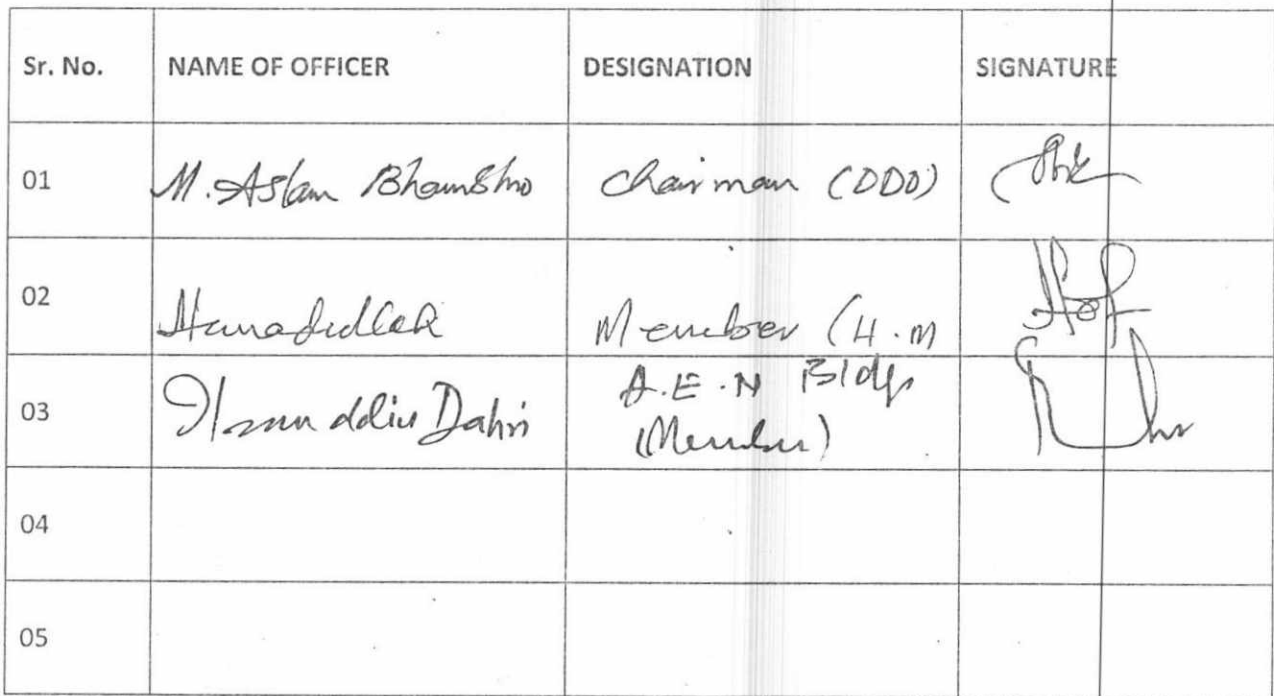 Sr. No. NAME OF OFFICER DESIGNATION SIGNATURE
01 M. Aslam Bhambhro Chairman (DDO)
02 Hamadullah Member (H.M
03 Dahri A.E.N Bldgs
(Member)
04
05